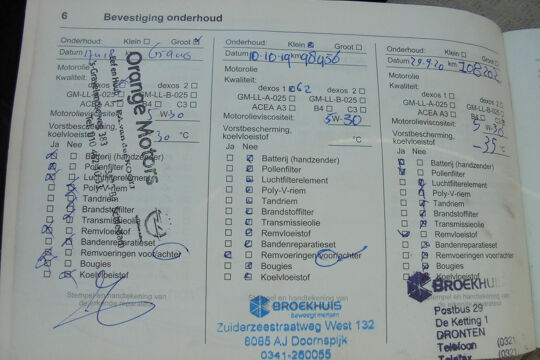 6 Bevestiging onderhoud
Onderhoud: Klein Groot
Datum km
Motorolie
Kwaliteit:
dexos 2
GM-LL-A-025 GM-LL-B-025
ACEA A3 B4 C3
Motorolieviscositeit: W-30
Vorstbescherming,
koelvloeistof 30 °C
Ja Nee
Batterij (handzender)
Pollenfilter
Luchtfilterelement
Poly-V-riem
Tandriem
Brandstoffilter
Transmissieolie
Remvloeistof
Bandenreparatieset
Remvoeringen voor/achter
Bougies
Koelvloeistof
Stempel en handtekening van
de erkende reparateur
Orange Motors
Onderhoud: Klein Groot
Datum 10-10-19 km 98456
Motorolie
Kwaliteit:
dexos 1 dexos 2
GM-LL-A-025 GM-LL-B-025
ACEA A3 B4 C3
Motorolieviscositeit: 5W-30
Vorstbescherming,
koelvloeistof °C
Ja Nee
Batterij (handzender)
Pollenfilter
Luchtfilterelement
Poly-V-riem
Tandriem
Brandstoffilter
Transmissieolie
Remvloeistof
Bandenreparatieset
Remvoeringen voor/achter
Bougies
Koelvloeistof
Stempel en handtekening van
BROEKHUIS
beweegt mensen
Zuiderzeestraatweg West 132
8085 AJ Doornspijk
0341-260055
Onderhoud: Klein Groot
Datum km
Motorolie
Kwaliteit:
dexos 1 dexos 2
GM-LL-A-025 GM-LL-B-025
ACEA A3 B4 C3
Motorolieviscositeit: 5 30
Vorstbescherming,
koelvloeistof -35 °C
Ja Nee
Batterij (handzender)
Pollenfilter
Luchtfilterelement
Poly-V-riem
Tandriem
Brandstoffilter
Transmissieolie
Remvloeistof
Bandenreparatieset
Remvoeringen voor/achter
Bougies
Koelvloeistof
Stempel en handtekening van
BROEKHUIS
Postbus 29
De Ketting 1
DRONTEN
Telefoon (032
Telefax (032